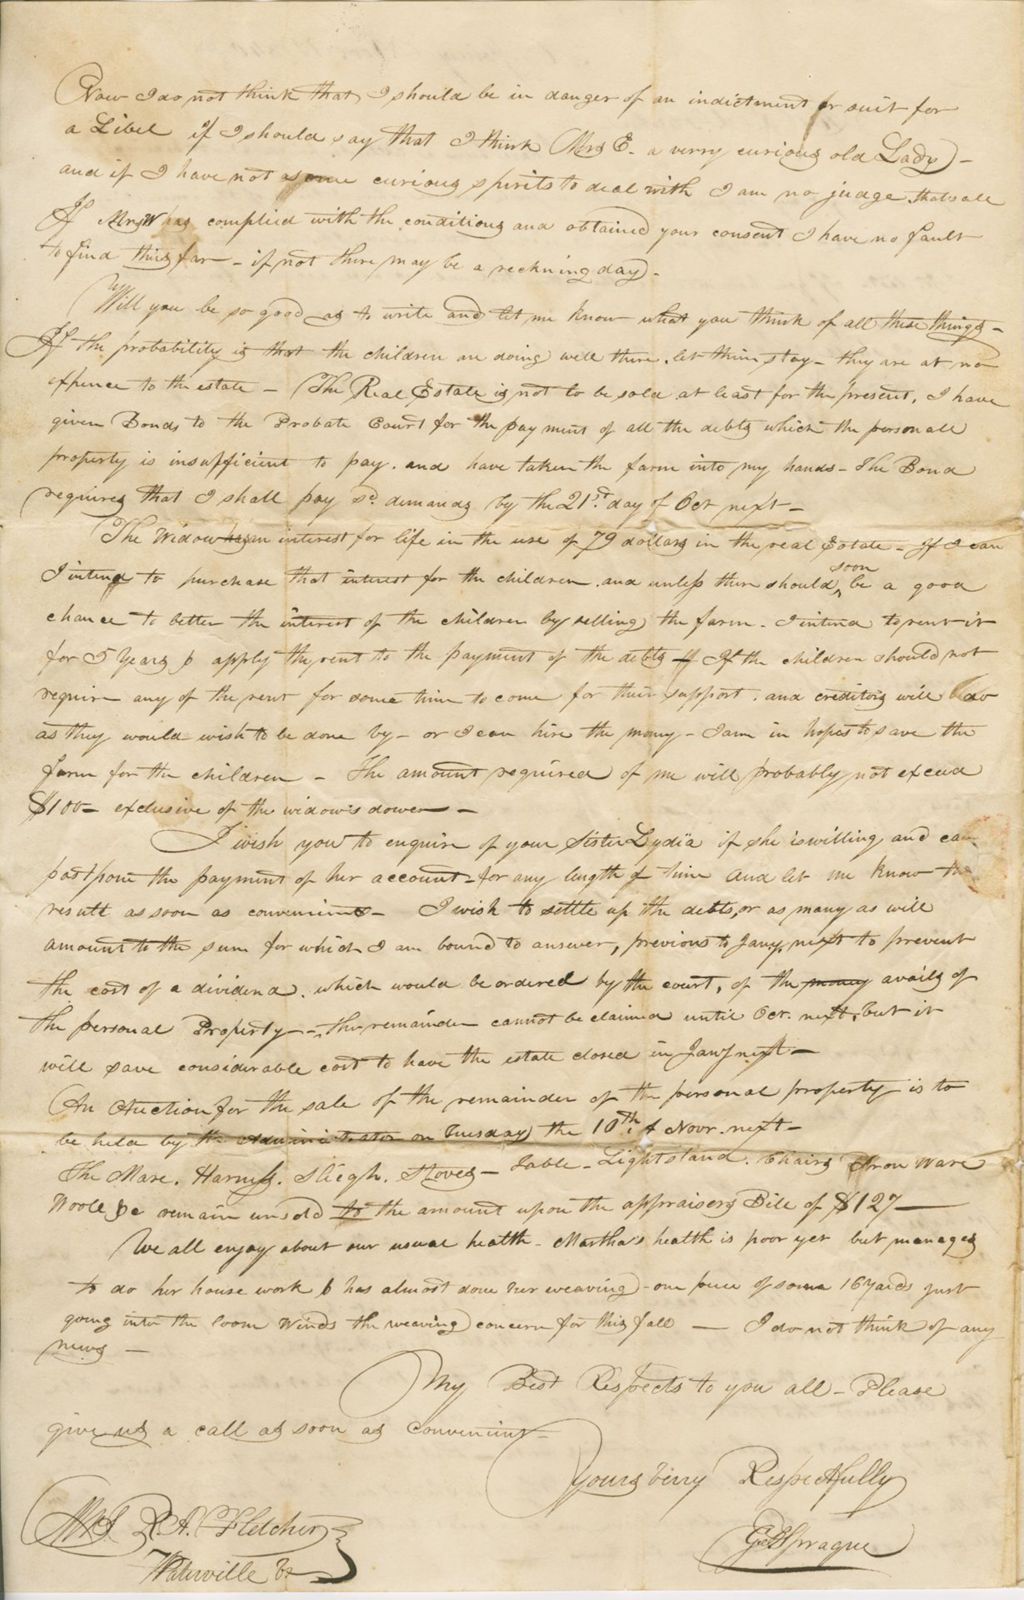 Now I do not think that I should be in danger of an indictment or suit for
a Libel if I should say that I think Mrs E. a verry curious old Lady -
and if I have not some curious spirits to deal with I am no judge. thats all
If Mrs W has complied with the conditions and obtained your consent I have no fault
to find thus far - if not there may be a reckning day -
Will you be so good as to write and let me know what you think of all these things -
If the probability is that the children are doing well there. let them stay - they are at no
expence to the estate - The Real Estate is not to be sold at least for the present, I have
given Bonds to the Probate Court for the payment of all the debts which the personall
property is insufficient to pay. and have taken the farm into my hands - The Bond
requires that I shall pay sd. demands by the 21st. day of Oct next -
The Widow has an interest for life in the use of 79 dollars in the real Estate - If I can
I intend to purchase that interest for the children. and unless there should soon be a good
chance to better the interest of the children by selling the farm. I intend to rent it
for 5 Years & apply the rent to the payment of the debts - If the children should not
require any of the rent for some time to come for their support. and creditors will do
as they would wish to be done by - or I can hire the money - I am in hopes to save the
farm for the children - The amount required of me will probably not exceed
$100 - exclusive of the widow's dower -
I wish you to enquire of your Sister Lydia if she is willing and can
postpone the payment of her account - for any length of time and let me know the
result as soon as convenient - I wish to settle up the debts, or as many as will
amount to the sum for which I am bound to answer, previous to Jany. next to prevent
the cost of a dividend. which would be ordered by the court, of the money avails of
the personal Property - the remainder cannot be claimed until Oct. next, but it
will save considerable cost to have the estate closed in Jany next -
An Auction for the sale of the remainder of the personal property is to
be held by the Administrator on Tuesday the 10th. of Novr. next -
The Mare. Harness. Sleigh. Stoves - Table - Lightstand. Chairs Iron Ware
Wool &c remain unsold to the amount upon the appraisers Bill of $127 -
We all enjoy about our usual health - Martha's health is poor yet but manages
to do her house work & has almost done her weaving - one piece of some 16 yards just
going into the loom winds the weaving concern for this fall - I do not think of any
news -
My Best Respects to you all - Please
give us a call as soon as convenient -
Yours verry Respectfully
G Sprague
R. A. Fletcher
Waterville Vt